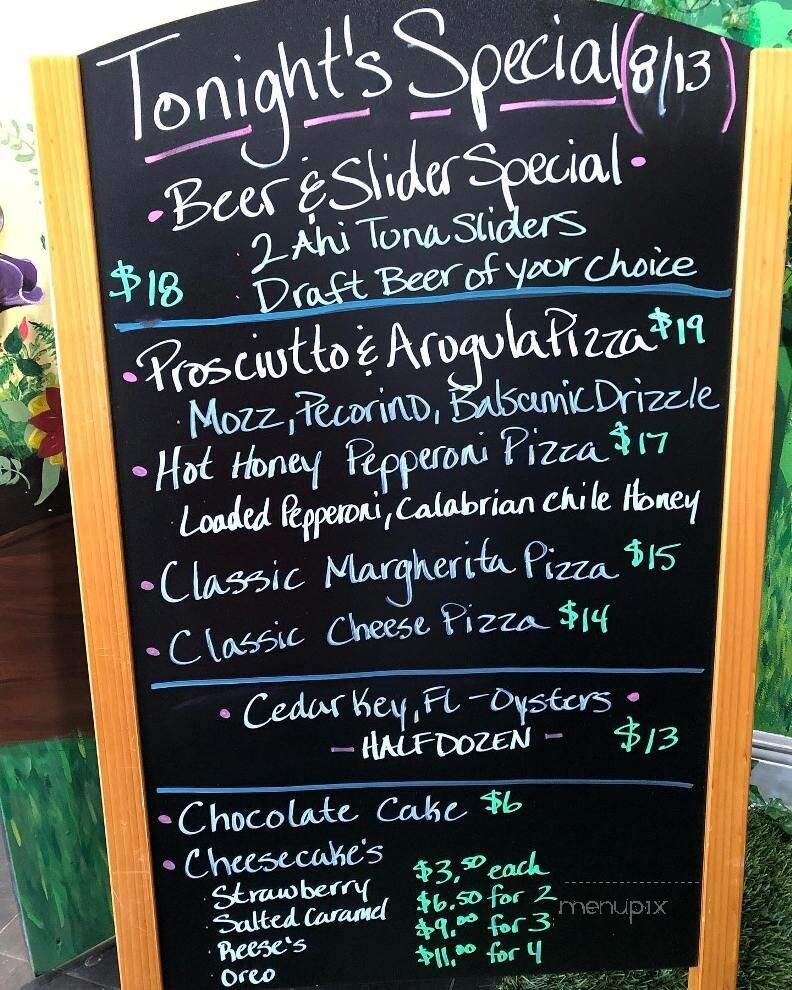 Tonight's Special (8/13)
• Beer & Slider Special •
2 Ahi Tuna Sliders
$18 Draft Beer of your choice
• Prosciutto & Arogula Pizza $19
Mozz, Pecorino, Balsamic Drizzle
• Hot Honey Pepperoni Pizza $17
Loaded Pepperoni, Calabrian chile Honey
• Classic Margherita Pizza $15
• Classic Cheese Pizza $14
• Cedar Key, FL - Oysters •
- HALF DOZEN - $13
• Chocolate Cake $6
• Cheesecake's
Strawberry $3.50 each
Salted Caramel $6.50 for 2
Reese's $9.00 for 3
Oreo $11.00 for 4
menupix